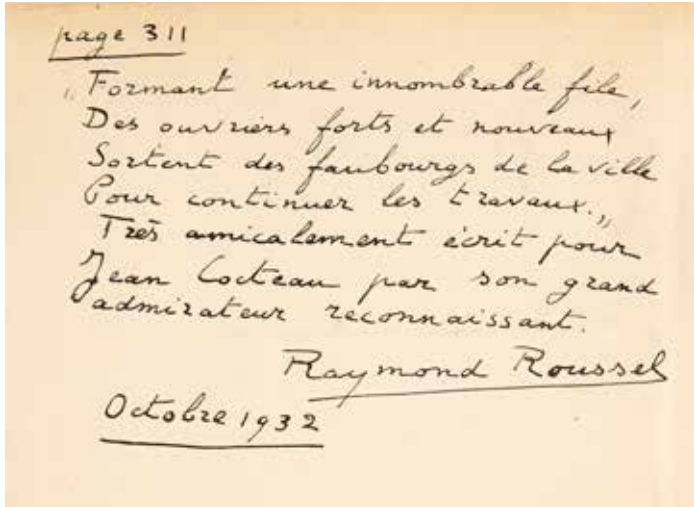 page 311
„Formant une innombrable file,
Des ouvriers forts et nouveaux
Sortent des faubourgs de la ville
Pour continuer les travaux.„
Très amicalement écrit pour
Jean Cocteau par son grand
admirateur reconnaissant.
Raymond Roussel
Octobre 1932